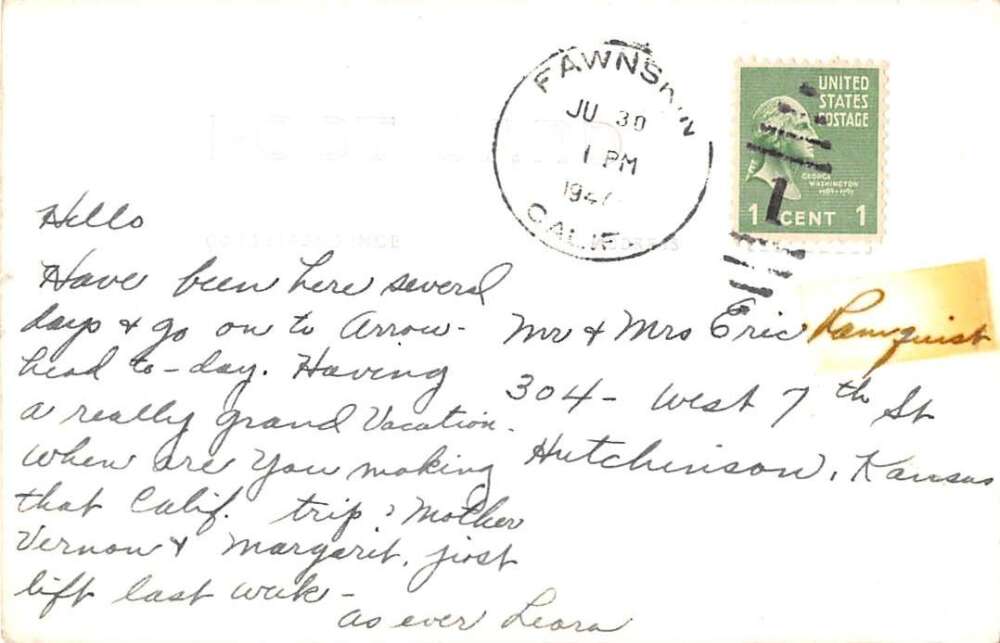 FAWNSKIN
JU 30
1 PM
194
CALIF.
UNITED
STATES
POSTAGE
GEORGE
WASHINGTON
1 CENT 1
1
Hello
Have been here several
days & go on to Arrow-
head to-day. Having
a really grand Vacation.
When are you making
that Calif. trip? Mother
Vernon & Margarit, just
left last week -
as ever Leora
Mr & Mrs Eric Ramquist
304 - West 7th St
Hutchinson, Kansas